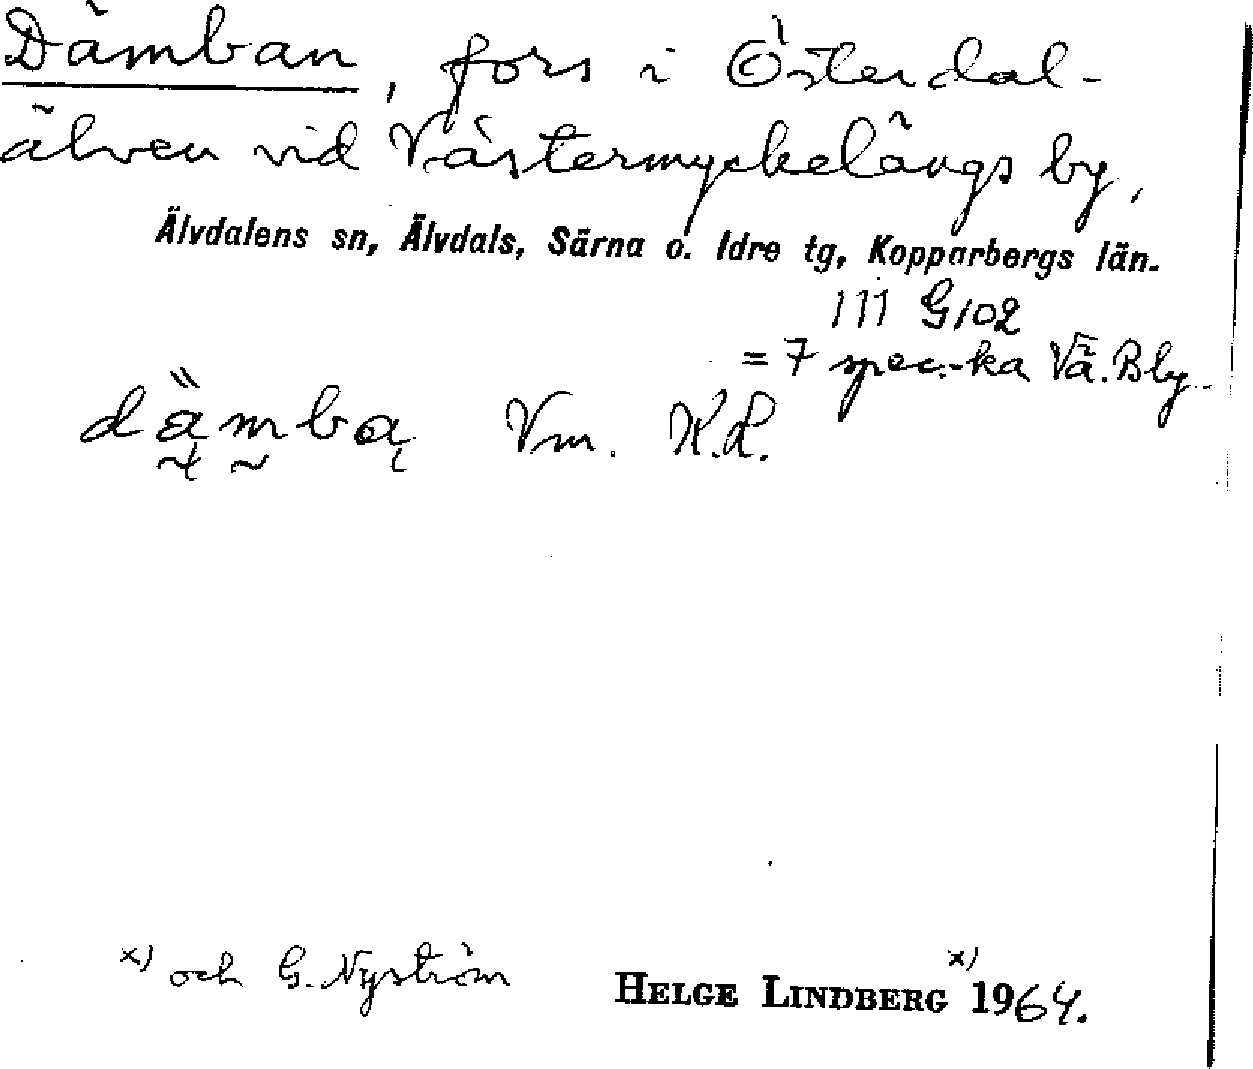 Dämban, fors i Österdal-
älven vid Västermyckelängs by,
Älvdalens sn, Älvdals, Särna o. Idre tg, Kopparbergs län.
111 G102
= 7 spec.-ka Vä. Bly.
dämba Vm. K.L.
x) och G. Nyström
HELGE LINDBERG x) 1964.